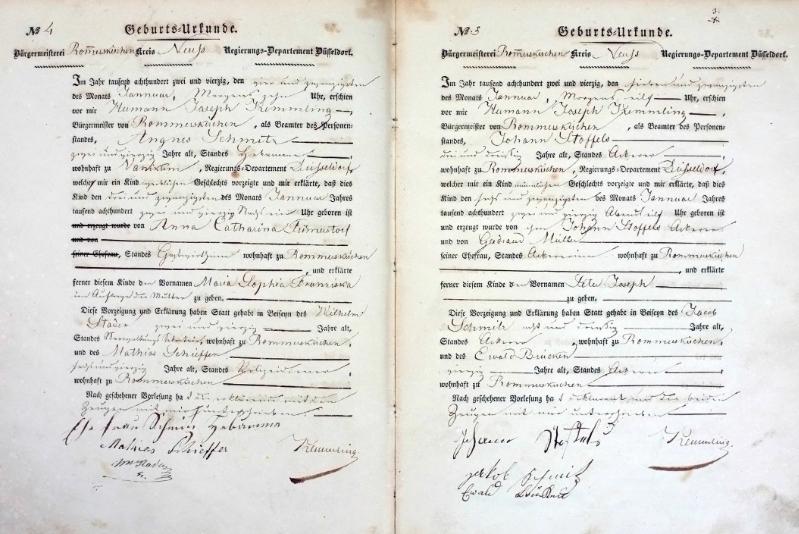 № 4 Geburts-Urkunde.
Bürgermeisterei Rommerskirchen Kreis Neuss Regierungs-Departement Düsseldorf.
Im Jahr tausend achthundert zwei und vierzig, den vier und zwanzigsten
des Monats Januar, Morgens zehn Uhr, erschien
vor mir Hermann Joseph Kemmling,
Bürgermeister von Rommerskirchen, als Beamter des Personen-
standes, Angnes Schmitz
Jahre alt, Standes Hebamme
wohnhaft zu Regierungs-Departement Düsseldorf
welcher mir ein Kind weiblichen Geschlechts vorzeigte und mir erklärte, daß dies
Kind den drei und zwanzigsten des Monats Januar Jahres
tausend achthundert zwei und vierzig Uhr geboren ist
und erzeugt wurde von Anna Catharina
und von
seiner Ehefrau, Standes wohnhaft zu Rommerskirchen
, und erklärte
ferner diesem Kinde den Vornamen Maria Sophia
zu geben.
Diese Vorzeigung und Erklärung haben Statt gehabt in Beiseyn des Wilhelm
Stader zwei und vierzig Jahre alt,
Standes wohnhaft zu Rommerskirchen
und des Mathias Schieffer
sechs und vierzig Jahre alt, Standes Polizeidiener
wohnhaft zu Rommerskirchen
Nach geschehener Vorlesung ha
Zeugen mit mir unterschrieben
Ehefrau Schmitz Hebamme
Mathies Schieffer
Wm Stader
Kemmling
№ 5 Geburts-Urkunde.
Bürgermeisterei Rommerskirchen Kreis Neuss Regierungs-Departement Düsseldorf.
Im Jahr tausend achthundert zwei und vierzig, den sieben und zwanzigsten
des Monats Januar Morgens eilf Uhr, erschien
vor mir Hermann Joseph Kemmling,
Bürgermeister von Rommerskirchen, als Beamter des Personen-
standes, Johann Stoffels
drei und dreißig Jahre alt, Standes Ackerer
wohnhaft zu Rommerskirchen, Regierungs-Departement Düsseldorf
welcher mir ein Kind männlichen Geschlechts vorzeigte und mir erklärte, daß dies
Kind den sechs und zwanzigsten des Monats Januar Jahres
tausend achthundert zwei und vierzig Abends eilf Uhr geboren ist
und erzeugt wurde von ihm Johann Stoffels Ackerer
und von Müller
seiner Ehefrau, Standes Ackererin wohnhaft zu Rommerskirchen
, und erklärte
ferner diesem Kinde den Vornamen Peter Joseph
zu geben.
Diese Vorzeigung und Erklärung haben Statt gehabt in Beiseyn des Jacob
Schmitz acht und dreißig Jahre alt,
Standes Ackerer, wohnhaft zu Rommerskirchen,
und des Ewald Brücken
vierzig Jahre alt, Standes Ackerer
wohnhaft zu Rommerskirchen
Nach geschehener Vorlesung ha t Deklarant und die beiden
Zeugen mit mir unterschrieben
Johann Stoffels
Jakob Schmitz
Ewald Brücken
Kemmling